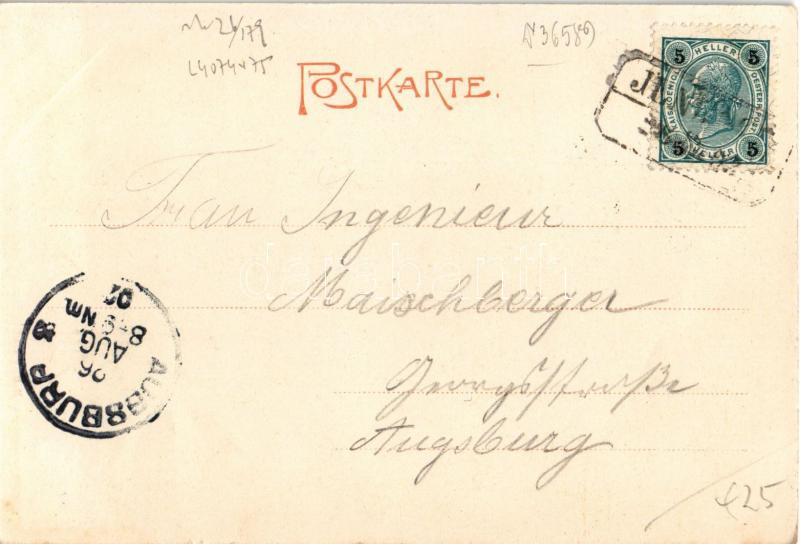 N3658
L4074x75
POSTKARTE.
5 HELLER 5
KAIS.KOENIGL. OESTERR.POST.
5 HELLER 5
Frau Ingenieur
Maischberger
Georgsstraße
Augsburg
AUGSBURG 3
26
AUG.
8-9 Nm.
02
darabanth
x25